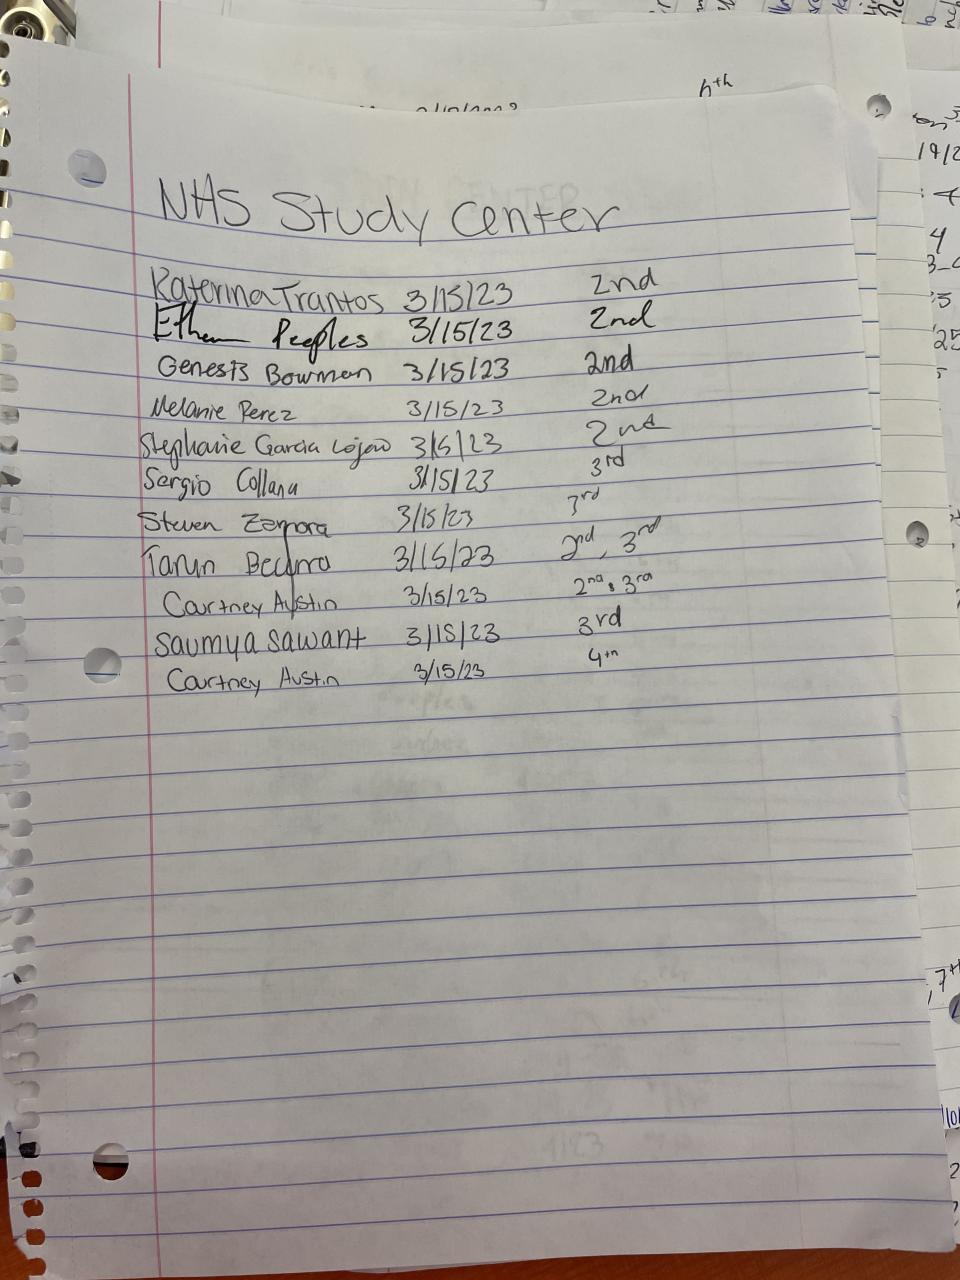 hth
NHS Study Center
Katerina Trantos 3/15/23 2nd
Ethan Peeples 3/15/23 2nd
Genesis Bowman 3/15/23 2nd
Melanie Perez 3/15/23 2nd
Stephanie Garcia 3/5/23 2nd
Sergio Collana 3/15/23 3rd
Steven Zamora 3/15/23 3rd
Tarun 3/15/23 2nd, 3rd
Courtney Austin 3/15/23 2nd & 3rd
Saumya Sawant 3/15/23 3rd
Courtney Austin 3/15/23 4th